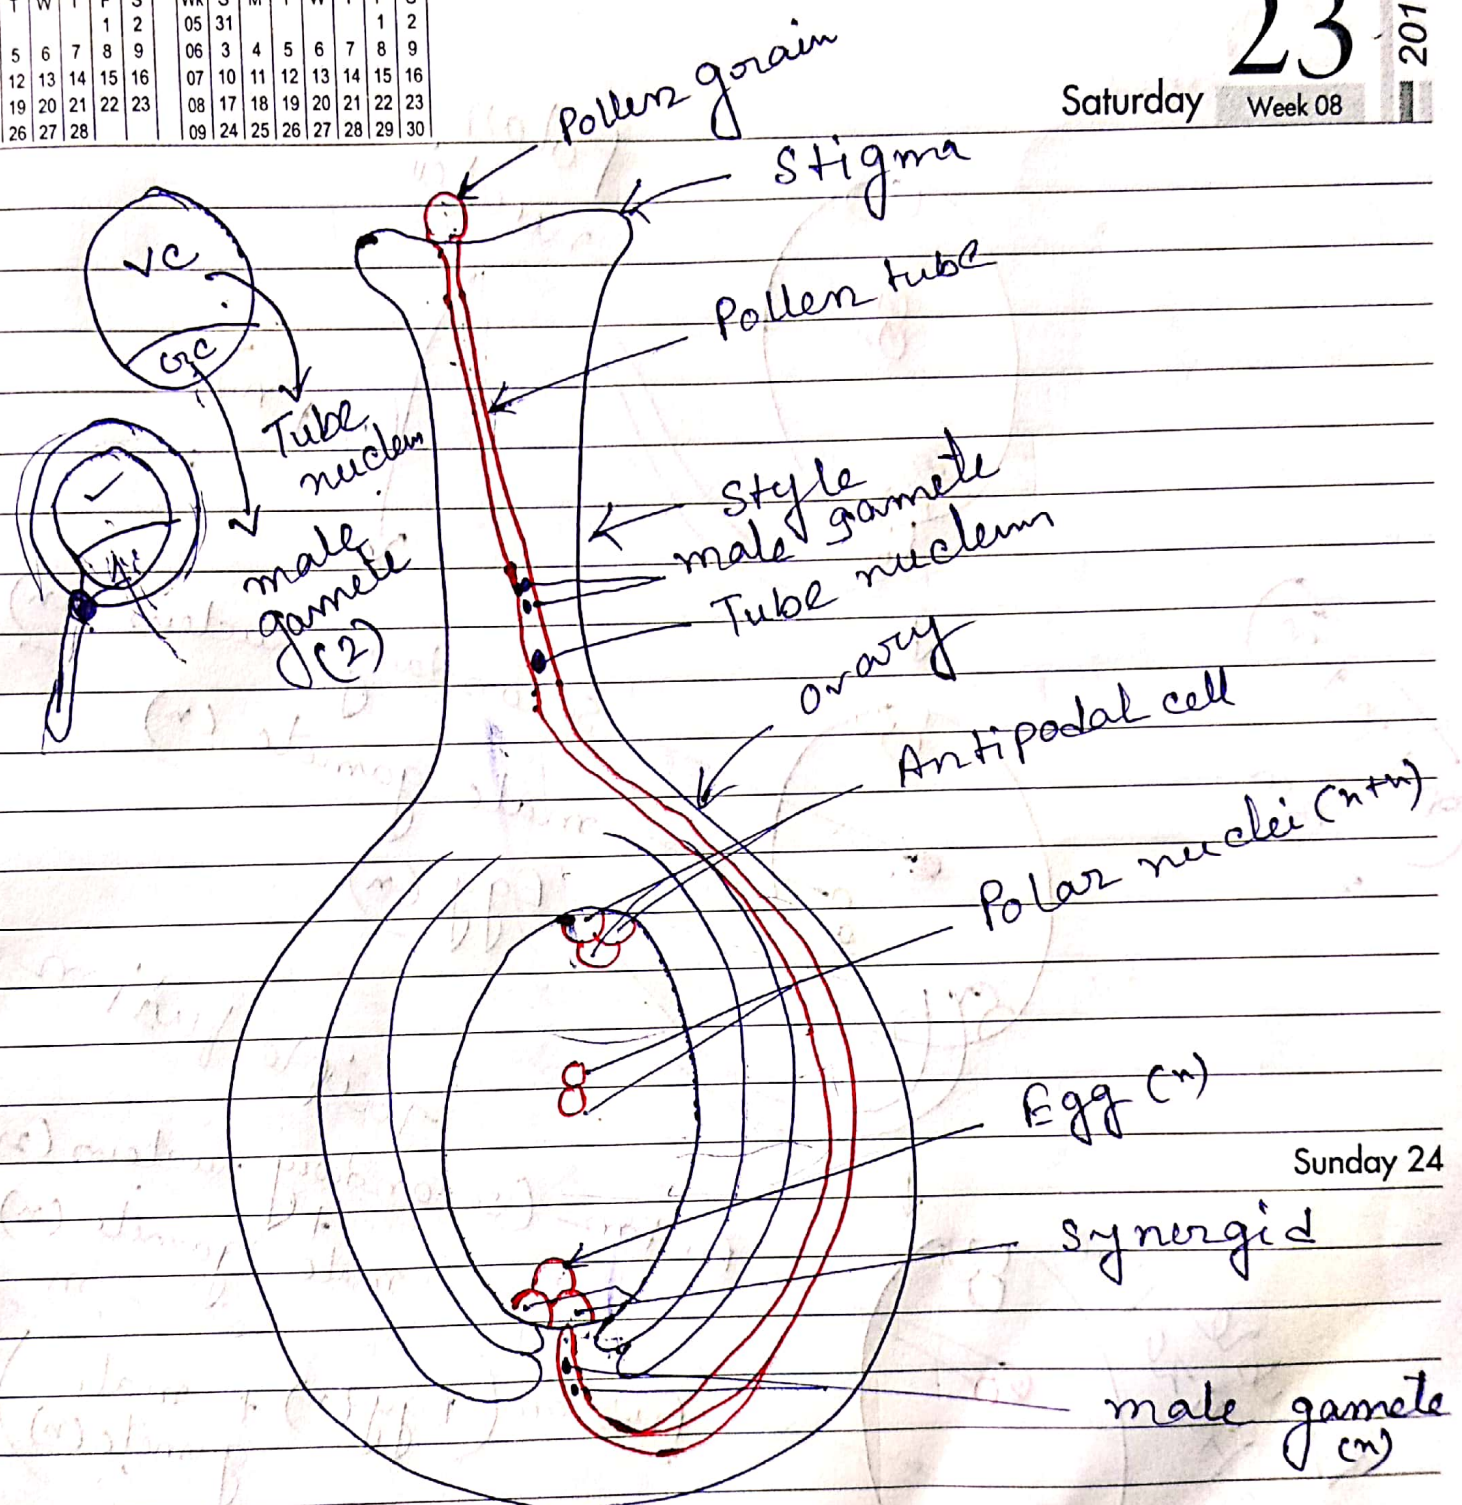 T W T F S
1 2
5 6 7 8 9
12 13 14 15 16
19 20 21 22 23
26 27 28
Wk S M T W T F S
05 31 1 2
06 3 4 5 6 7 8 9
07 10 11 12 13 14 15 16
08 17 18 19 20 21 22 23
09 24 25 26 27 28 29 30
23
201
Saturday Week 08
Pollen grain
Stigma
VC
GC
Pollen tube
Tube
nucleus
Style
male gamete
Tube nucleus
male
gamete
(2)
ovary
Antipodal cell
Polar nuclei (n+n)
Egg (n)
Sunday 24
Synergid
male gamete
(n)